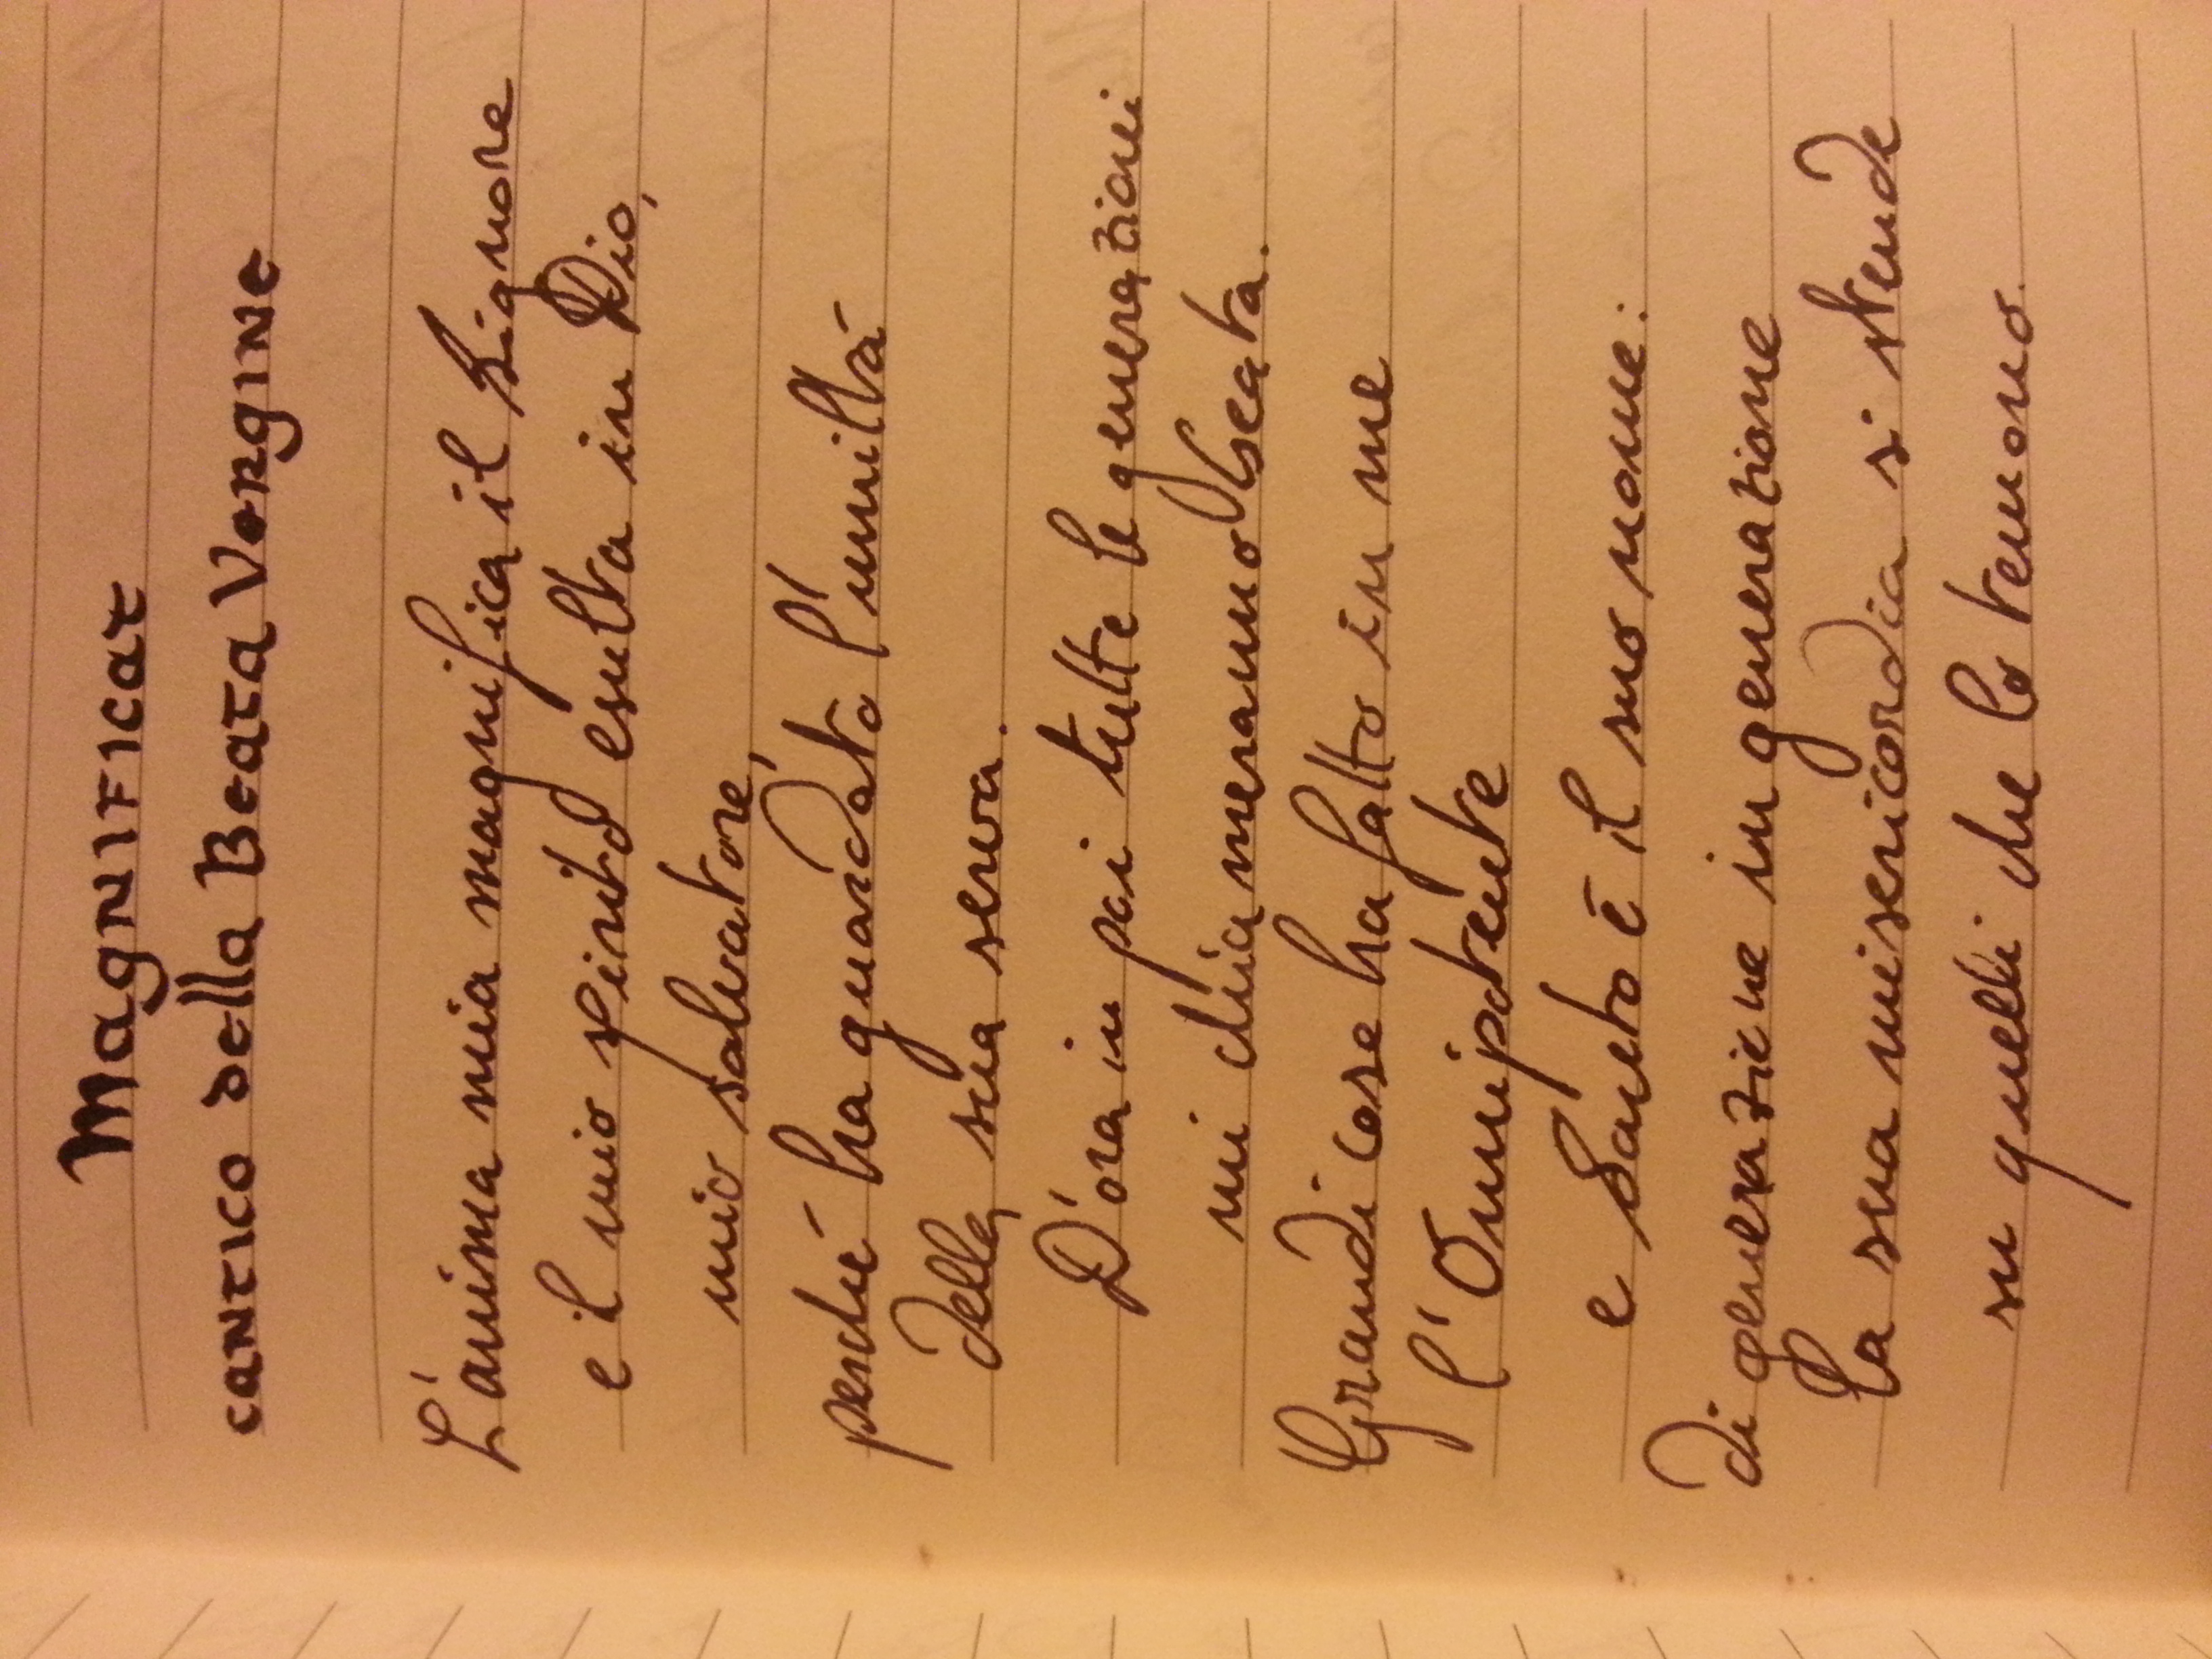 Magnificat
cantico della Beata Vergine
L'anima mia magnifica il Signore
e il mio spirito esulta in Dio,
mio salvatore,
perché ha guardato l'umiltá
della sua serva.
D'ora in poi tutte le generazioni
mi chiameranno beata.
Grandi cose ha fatto in me
l'Onnipotente
e Santo é il suo nome:
di generazione in generazione
la sua misericordia si stende
su quelli che lo temono.